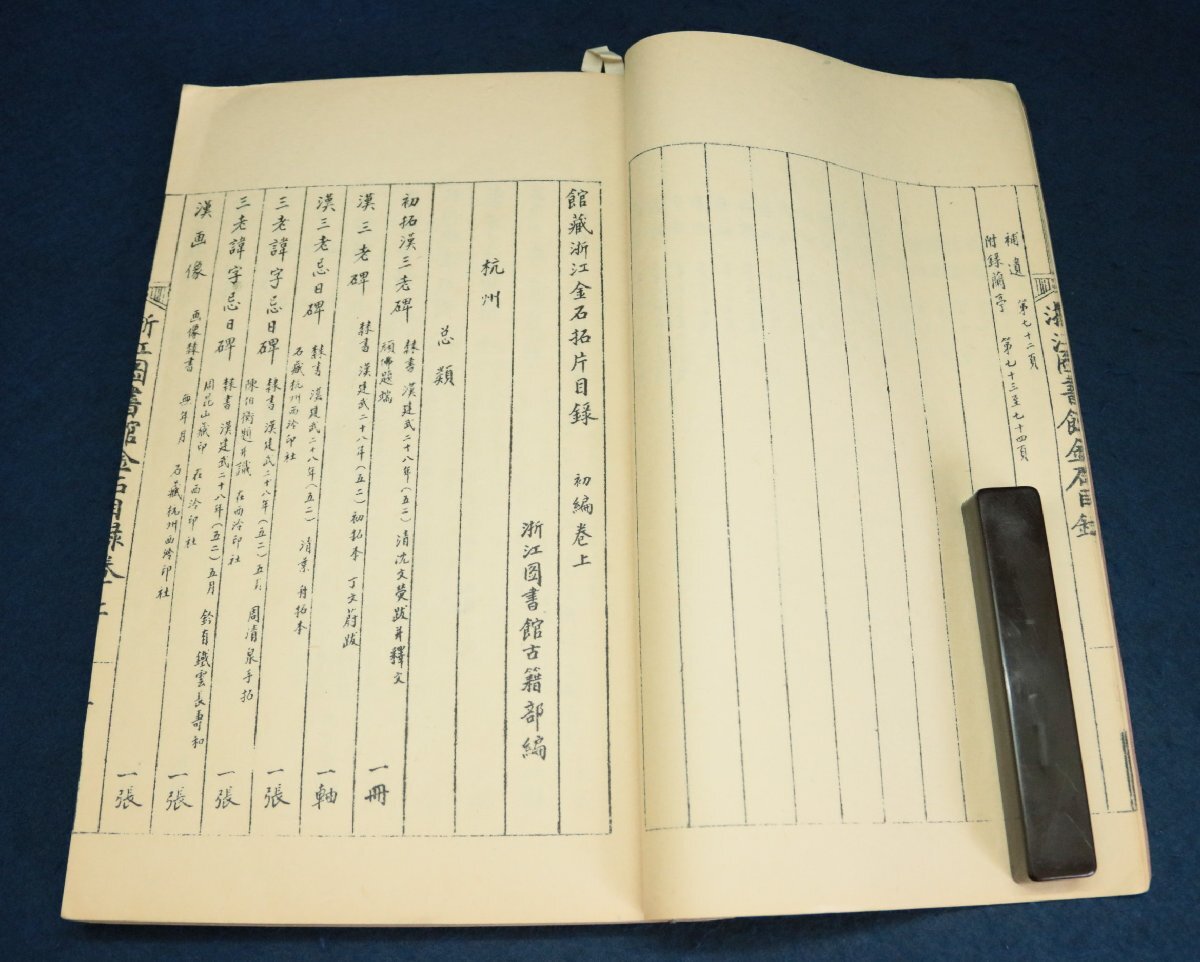 補遺 第七十二頁
附録蘭亭 第七十三至七十四頁
浙江图書館金石目錄
館藏浙江金石拓片目錄 初編卷上
浙江图書館古籍部編
杭州
总類
初拓漢三老碑 隸書 漢建武二十八年(五二) 清沈文熒跋并釋文
題端 一冊
漢三老碑 隸書 漢建武二十八年(五二) 初拓本 丁文蔚跋 一軸
漢三老忌日碑 隸書 漢建武二十八年(五二) 清 舟拓本
石藏杭州西泠印社 一張
三老諱字忌日碑 隸書 漢建武二十八年(五二)五月 周清泉手拓
陳伯衡題并識 在西泠印社 一張
三老諱字忌日碑 隸書 漢建武二十八年(五二)五月 鈐有鐵雲長壽和
周 山藏印 在西泠印社 一張
漢画像 画像隸書 無年月 石藏杭州西泠印社 一張
浙江图書館金石目録卷上